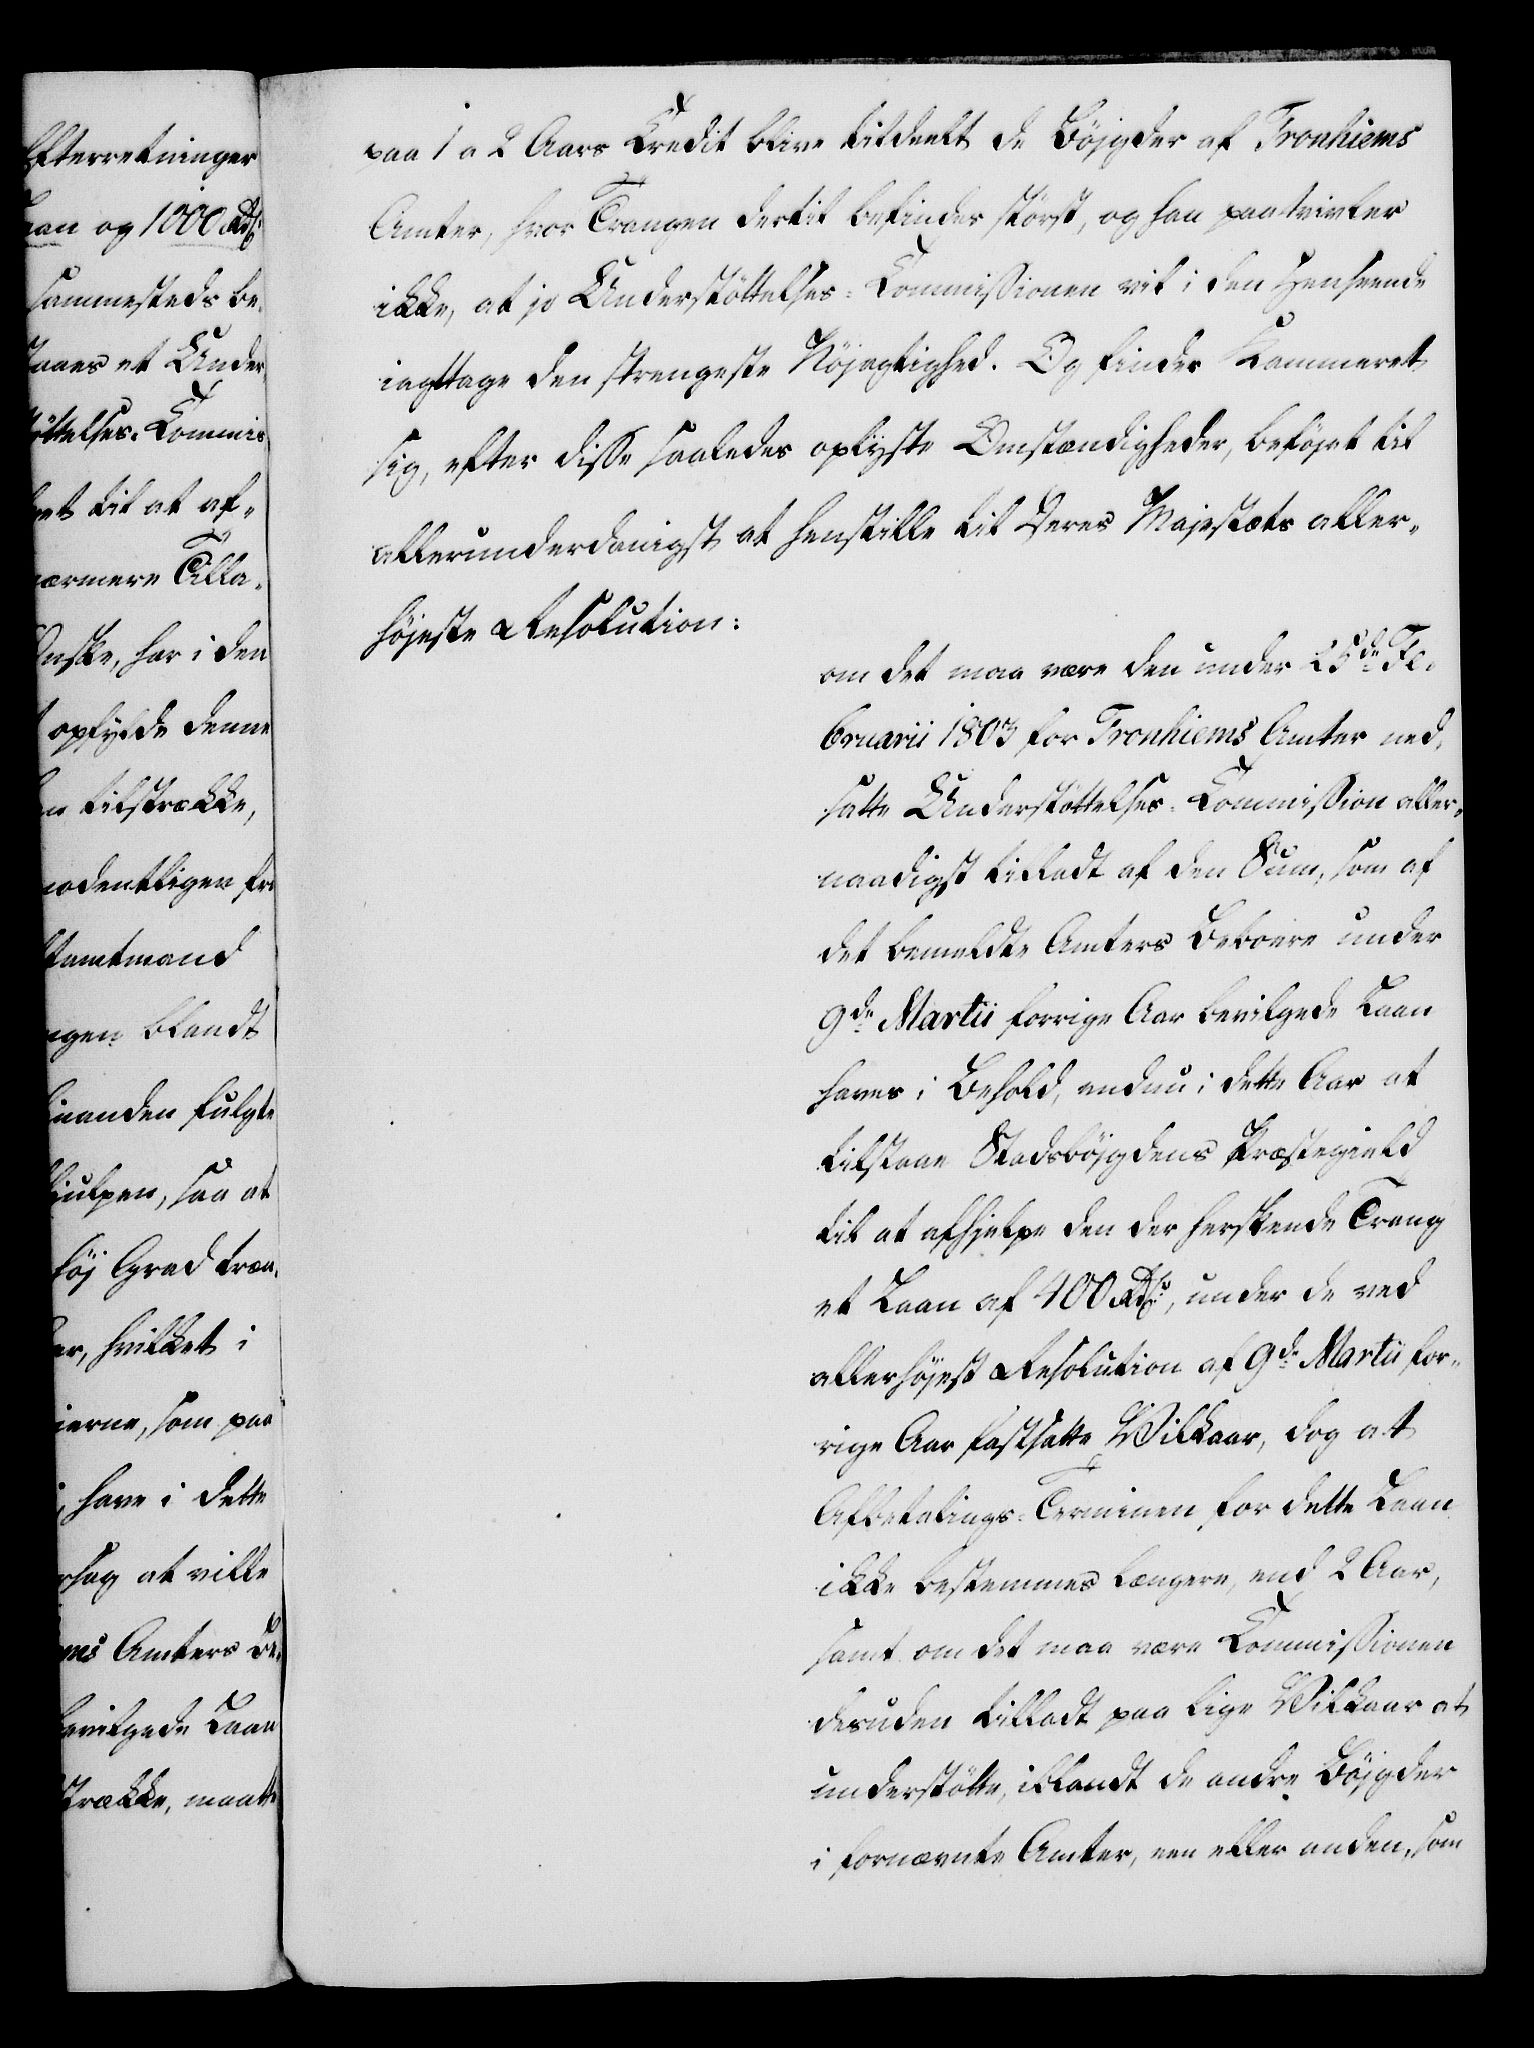 Efterretninger
Laan og 1000 Rd
sammesteds be-
staaes et Under
støttelses-Commis
het til at af-
nærmere Tilla-
Ønske, har i den
opfylde denne
tilstrække,
nodentligen fra
Stamtmand
ngen blandt
hinanden fulgte
hiulpen, saa at
høj Grad træn-
er, hvilket i
ierne, som paa
have i dette
rsag at ville
ems Amters Be-
bevilgede Laan
strække, maatte
paa 1 a 2 Aars Credit blive tildeelt de Bøjgder af Tronhiems
Amter, hvor Trangen dertil befindes størst, og han paatvivler
ikke, at jo Understøttelses-Commissionen vil i den Henseende
iagttage den strengeste Nøjagtighed. Og finder Kammeret
sig, efter disse saaledes oplyste Omstændigheder, beføjet til
allerunderdanigst at henstille til Deres Majestæts aller-
højeste Resolution:
om det maa være den under 25de Fe-
bruarii 1803 for Tronhiems Amter ned-
satte Understøttelses-Commission aller-
naadigst tilladt af den Sum, som af
det bemeldte Amters Beboere under
9de Martii forrige Aar bevilgede Laan
haves i Behold, endnu i dette Aar at
tilstaae Stadsbøjgdens Præstegield
til at afhjelpe den der herskende Trang
et Laan af 400 Rd, under de ved
allerhøjest Resolution af 9de Martii for-
rige Aar fastsatte Vilkaar, dog at
Afbetalings-Terminen for dette Laan
ikke bestemmes længere, end 2 Aar,
samt om det maa være Commissionen
desuden tilladt paa lige Vilkaar at
understøtte, iblandt de andre Bøjgder
i fornævnte Amter, een eller anden, som